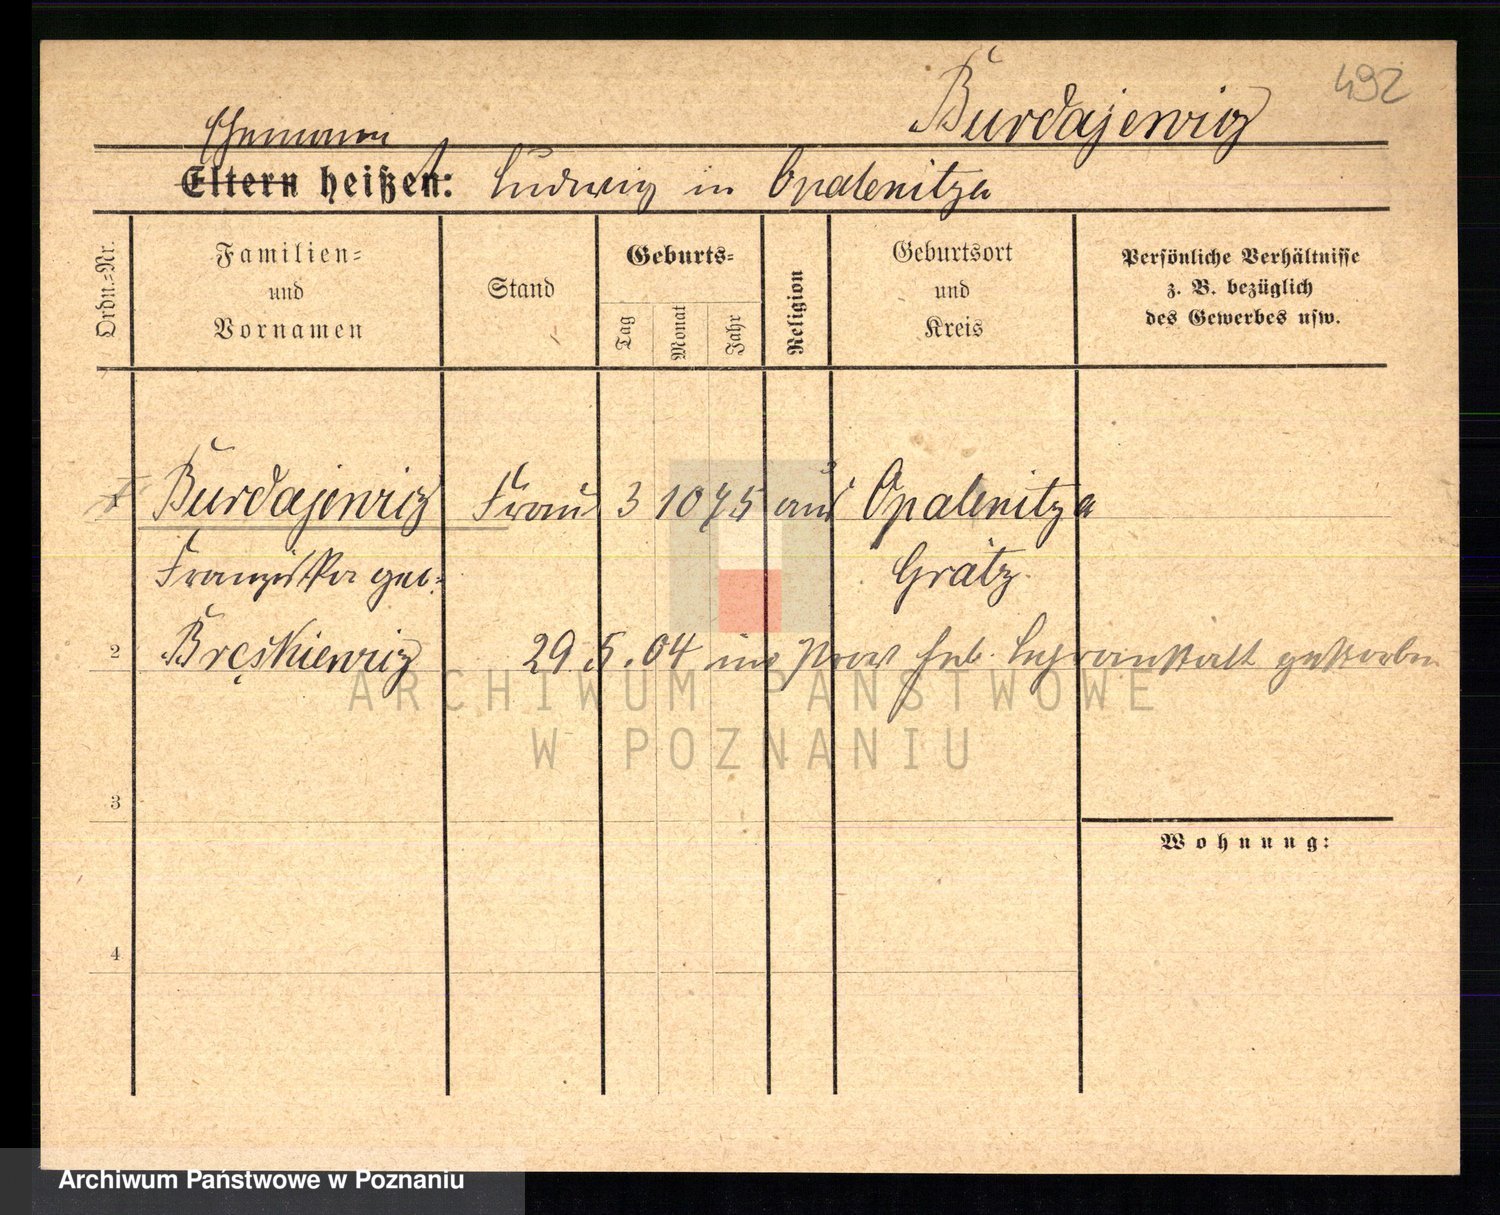 492
Burdajewicz
Ehemann
Eltern heißen: Ludwig in Opalenitza
Ordn.-Nr.
Familien-
und
Vornamen
Stand
Geburts-
Tag
Monat
Jahr
Religion
Geburtsort
und
Kreis
Persönliche Verhältnisse
z. B. bezüglich
des Gewerbes usw.
1 Burdajewicz Frau 3 10 75 aus Opalenitza
Franziska geb. Grätz.
2 Bręskiewicz 29.5.04 in Prov. Heb. Lehranstalt gestorben
3
Wohnung:
4
ARCHIWUM PAŃSTWOWE
W POZNANIU
Archiwum Państwowe w Poznaniu